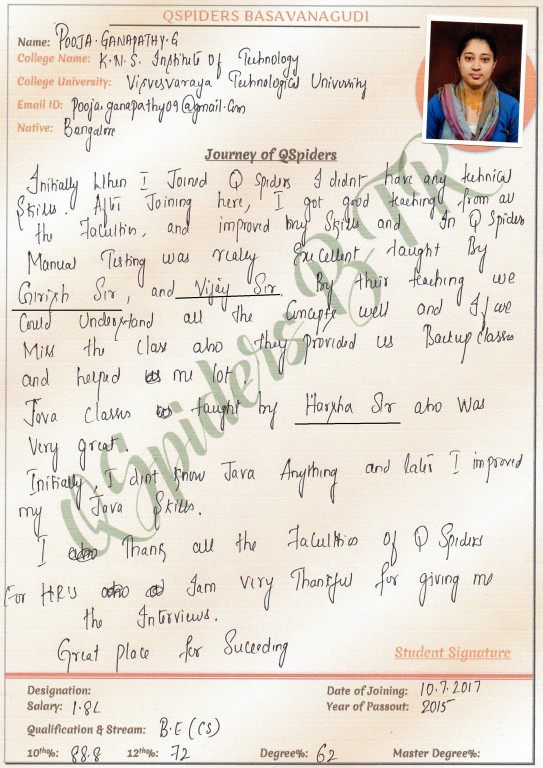 QSPIDERS BASAVANAGUDI
Name: POOJA.GANAPATHY.G
College Name: K.N.S. Institute Of Technology
College University: Visvesvaraya Technological University
Email ID: Pooja.ganapathy09@gmail.com
Native: Bangalore
Journey of QSpiders
Initially When I Joined Q Spiders I didnt have any technical
Skills. After Joining here, I got good teaching from all
the Faculties, and improved my Skills and In Q Spiders
Manual Testing was really Excellent taught By
Girish Sir, and Vijay Sir By their teaching we
Could Understand all the Concepts well and If we
Miss the Class also they provided us Backup Classes
and helped me lot.
Java Classes taught by Harsha Sir also Was
Very great
Initially, I didnt know Java Anything and later I improved
my Java Skills.
I Thank all the Faculties Of Q Spiders
For HR'S Iam very Thankful for giving me
the Interviews.
Great place for Suceeding
Student Signature
QSpiders BTR
Designation:
Date of Joining: 10.7.2017
Salary: 1.8L
Year of Passout: 2015
Qualification & Stream: B.E (CS)
10th%: 88.8 12th%: 72 Degree%: 62 Master Degree%: